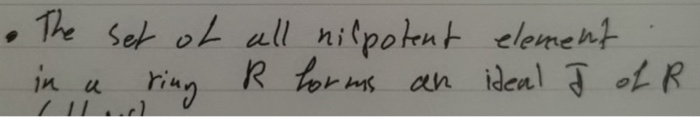 • The set of all nilpotent element
in a ring R forms an ideal I of R